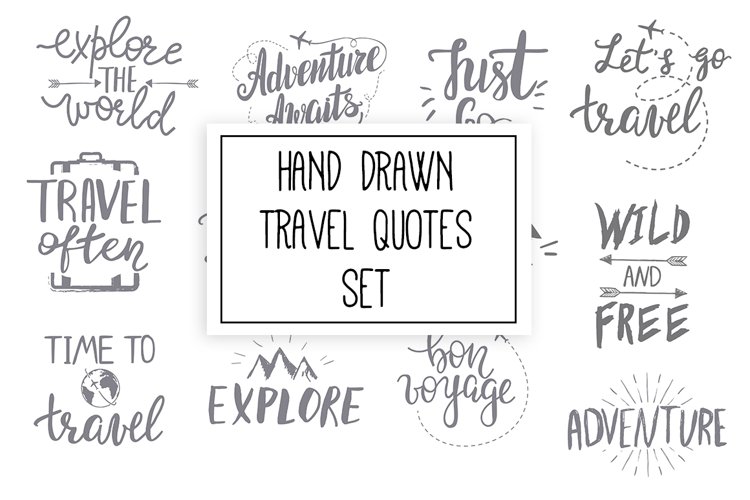 explore
THE
world
Adventure
Awaits
Just
Go
Let's go
travel
TRAVEL
often
HAND DRAWN
TRAVEL QUOTES
SET
WILD
AND
FREE
TIME TO
travel
EXPLORE
bon
voyage
ADVENTURE